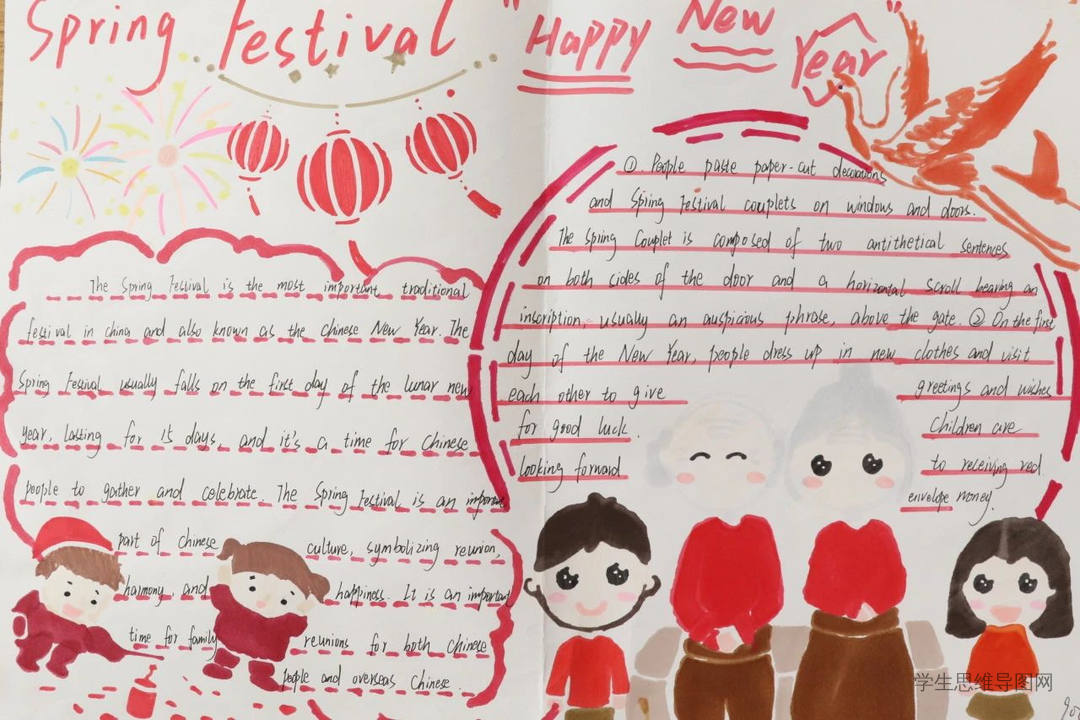 Spring Festival
"Happy New Year"
The Spring Festival is the most important traditional
festival in china and also known as the chinese New Year. The
Spring Festival usually falls on the first day of the lunar new
year, lasting for 15 days, and it's a time for Chinese
people to gather and celebrate. The Spring Festival is an important
part of Chinese culture, symbolizing reunion,
harmony, and happiness. It is an important
time for family reunions for both Chinese
people and overseas Chinese.
① People paste paper-cut decorations
and Spring Festival couplets on windows and doors.
The Spring Couplet is composed of two antithetical sentences
on both sides of the door and a horizontal scroll bearing an
inscription, usually an auspicious phrase, above the gate. ② On the first
day of the New Year, people dress up in new clothes and visit
each other to give greetings and wishes
for good luck. Children are
looking forward to receiving red
envelope money.
学生思维导图网